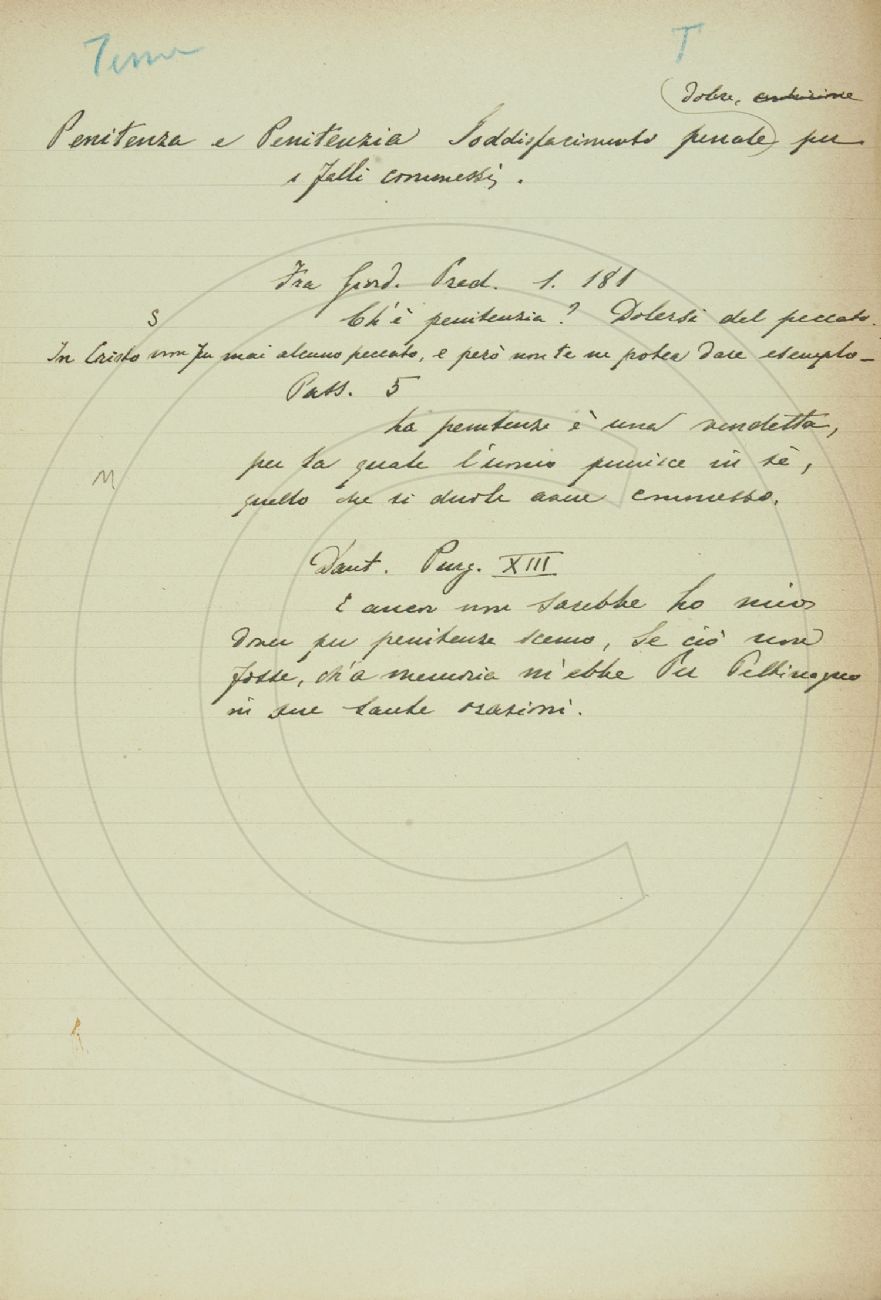 Tema T
(Dolore, contrizione
Penitenza e Penitenzia Soddisfacimento penale) per
i falli commessi.
Fra Giord. Pred. 1. 181
S Ch'è penitenzia? Dolersi del peccato.
In Cristo non fu mai alcuno peccato, e però non te ne potea dare esemplo_
Pass. 5
La penitenza è una vendetta,
per la quale l'uomo punisce in sè,
M
quello che si duole avere commesso.
Dant. Purg. XIII
E ancor non sarebbe Lo mio
dover per penitenza scemo, Se ciò non
fosse, ch'a memoria m'ebbe Pier Pettinagno
in sue sante orazioni.